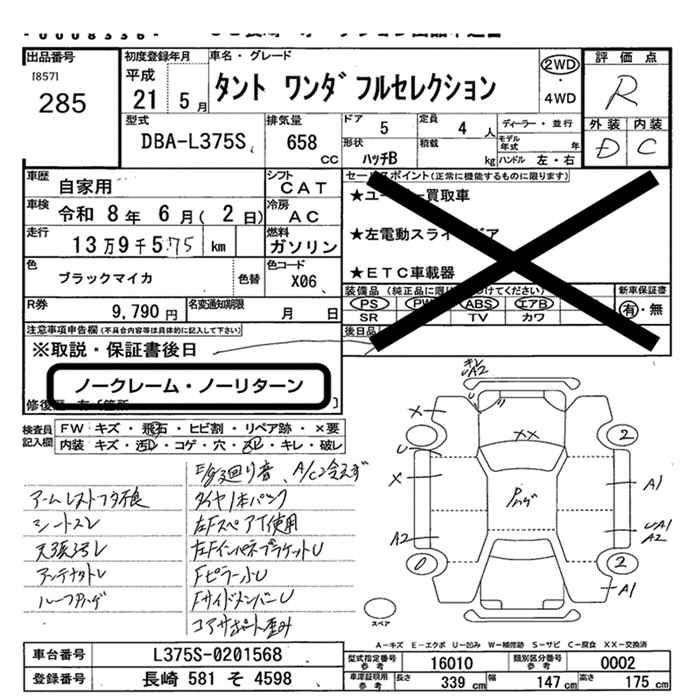 出品番号 初度登録年月 車名・グレード 評価点
[857]
285
平成 21年 5月
タント ワンダフルセレクション
2WD・4WD
R
外装 内装
D C
型式 DBA-L375S
排気量 658 cc
ドア 5
定員 4 人
形状 ハッチB
積載 kg
ディーラー・並行
モデル年式 年
ハンドル 左・右
車歴 自家用
シフト CAT
車検 令和 8年 6月(2日)
冷房 AC
走行 13万9千575 km
燃料 ガソリン
色 ブラックマイカ 色替
色コード X06
R券 9,790円
名変通知期限 月 日
セールスポイント(正常に機能するものに限ります)
★ユーザー買取車
★左電動スライドドア
★ETC車載器
装備品(純正品に限りつけてください)
PS PW ABS エアB
SR TV カワ
新車保証書
有・無
後日品
注意事項申告欄(不具合内容等は具体的に記入して下さい)
※取説・保証書後日
ノークレーム・ノーリターン
検査員記入欄
FW キズ・飛石・ヒビ割・リペア跡・×要
内装 キズ・汚レ・コゲ・穴・スレ・キレ・破レ
E/g廻り音、A/C冷えず
アームレストフタ不良
タイヤ1本パンク
シートスレ
左FスペアT使用
天張汚レ
左FインパネブラケットU
アンテナ
Fピラー小U
FサイドメンバーU
コアサポート歪み
キレ
A2
X
U
XX
2
X
A1
A2
UA1
A2
0
2
A1
スペア
A-キズ E-エクボ U-凹み W-補修跡 S-サビ C-腐食 XX-交換済
車台番号 L375S-0201568
型式指定番号参考 16010
類別区分番号参考 0002
登録番号 長崎 581 そ 4598
車庫証明用参考 長さ 339 cm 幅 147 cm 高さ 175 cm